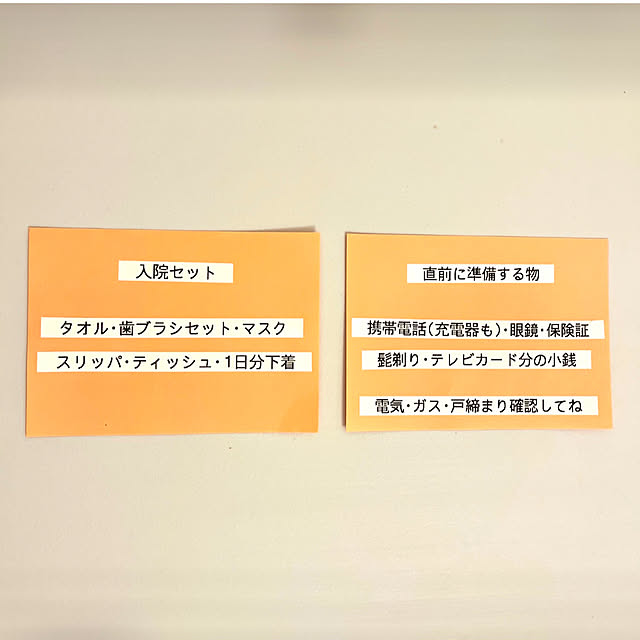 入院セット
タオル・歯ブラシセット・マスク
スリッパ・ティッシュ・1日分下着
直前に準備する物
携帯電話(充電器も)・眼鏡・保険証
髭剃り・テレビカード分の小銭
電気・ガス・戸締まり確認してね